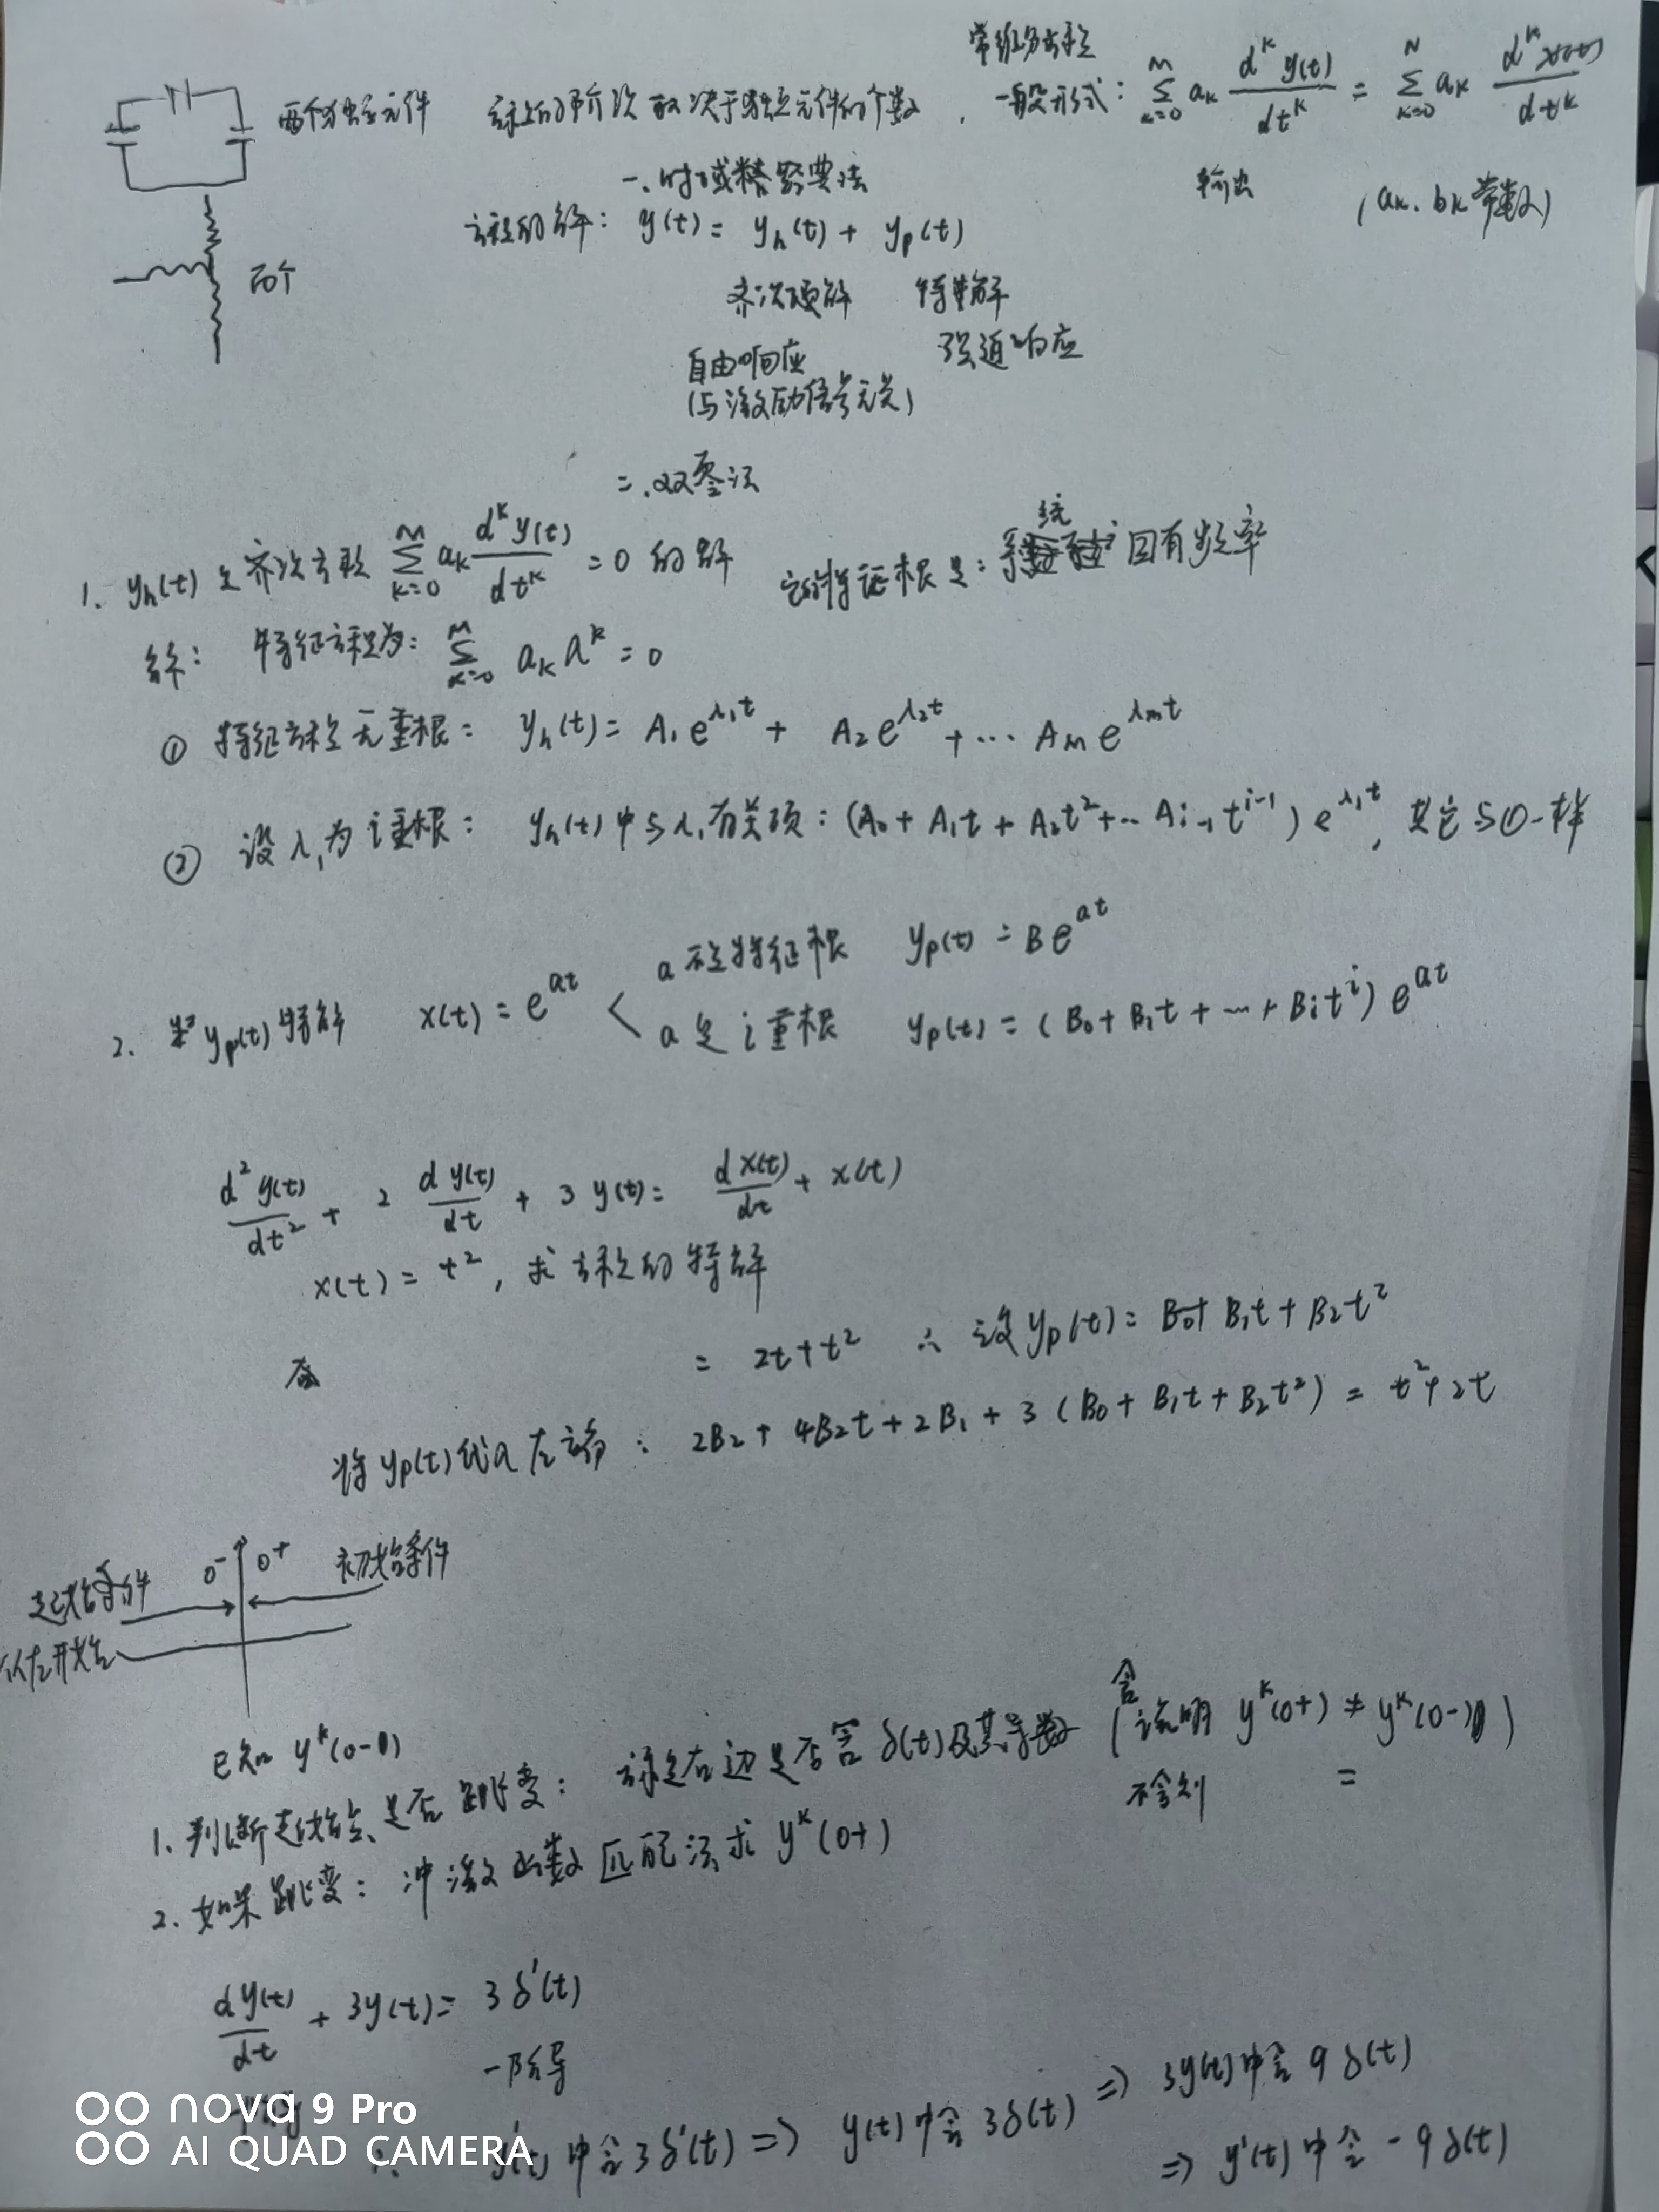 常微分方程
两个独立元件 方程的阶次取决于独立元件的个数, 一般形式: Σ_{k=0}^{M} a_k d^k y(t)/dt^k = Σ_{k=0}^{N} a_k d^k x(t)/dt^k
输出 (a_k、b_k 常数)
一、时域经典法
方程的解: y(t) = y_h(t) + y_p(t)
两个
齐次解 特解
自由响应 强迫响应
(与激励信号无关)
二、双零法
1. y_h(t) 是齐次方程 Σ_{k=0}^{M} a_k d^k y(t)/dt^k = 0 的解 它的特征根是: 系统 固有频率
解: 特征方程为: Σ_{k=0}^{M} a_k a^k = 0
① 特征方程无重根: y_h(t) = A_1 e^{λ_1 t} + A_2 e^{λ_2 t} + ... A_m e^{λ_m t}
② 设 λ_1 为 i 重根: y_h(t) 中与 λ_1 有关项: (A_0 + A_1 t + A_2 t^2 + ... A_{i-1} t^{i-1}) e^{λ_1 t}, 其它与①一样
a 不是特征根 y_p(t) = B e^{at}
2. 求 y_p(t) 特解 x(t) = e^{at} <
a 是 i 重根 y_p(t) = (B_0 + B_1 t + ... + B_i t^i) e^{at}
d^2 y(t)/dt^2 + 2 dy(t)/dt + 3y(t) = dx(t)/dt + x(t)
x(t) = t^2, 求方程的特解
右 = 2t + t^2 ∴ 设 y_p(t) = B_0 + B_1 t + B_2 t^2
将 y_p(t) 代入左端: 2B_2 + 4B_2 t + 2B_1 + 3(B_0 + B_1 t + B_2 t^2) = t^2 + 2t
起始条件 0^- 0^+ 初始条件
从左开始
已知 y^k(0-)
1. 判断起始点是否跳变: 方程右边是否含 δ(t) 及其导数 (含 说明 y^k(0+) ≠ y^k(0-))
不含则 =
2. 如果跳变: 冲激函数匹配法求 y^k(0+)
dy(t)/dt + 3y(t) = 3δ'(t)
一阶导
∴ y'(t) 中含 3δ'(t) ⇒ y(t) 中含 3δ(t) ⇒ 3y(t) 中含 9δ(t)
⇒ y'(t) 中含 -9δ(t)
nova 9 Pro
AI QUAD CAMERA